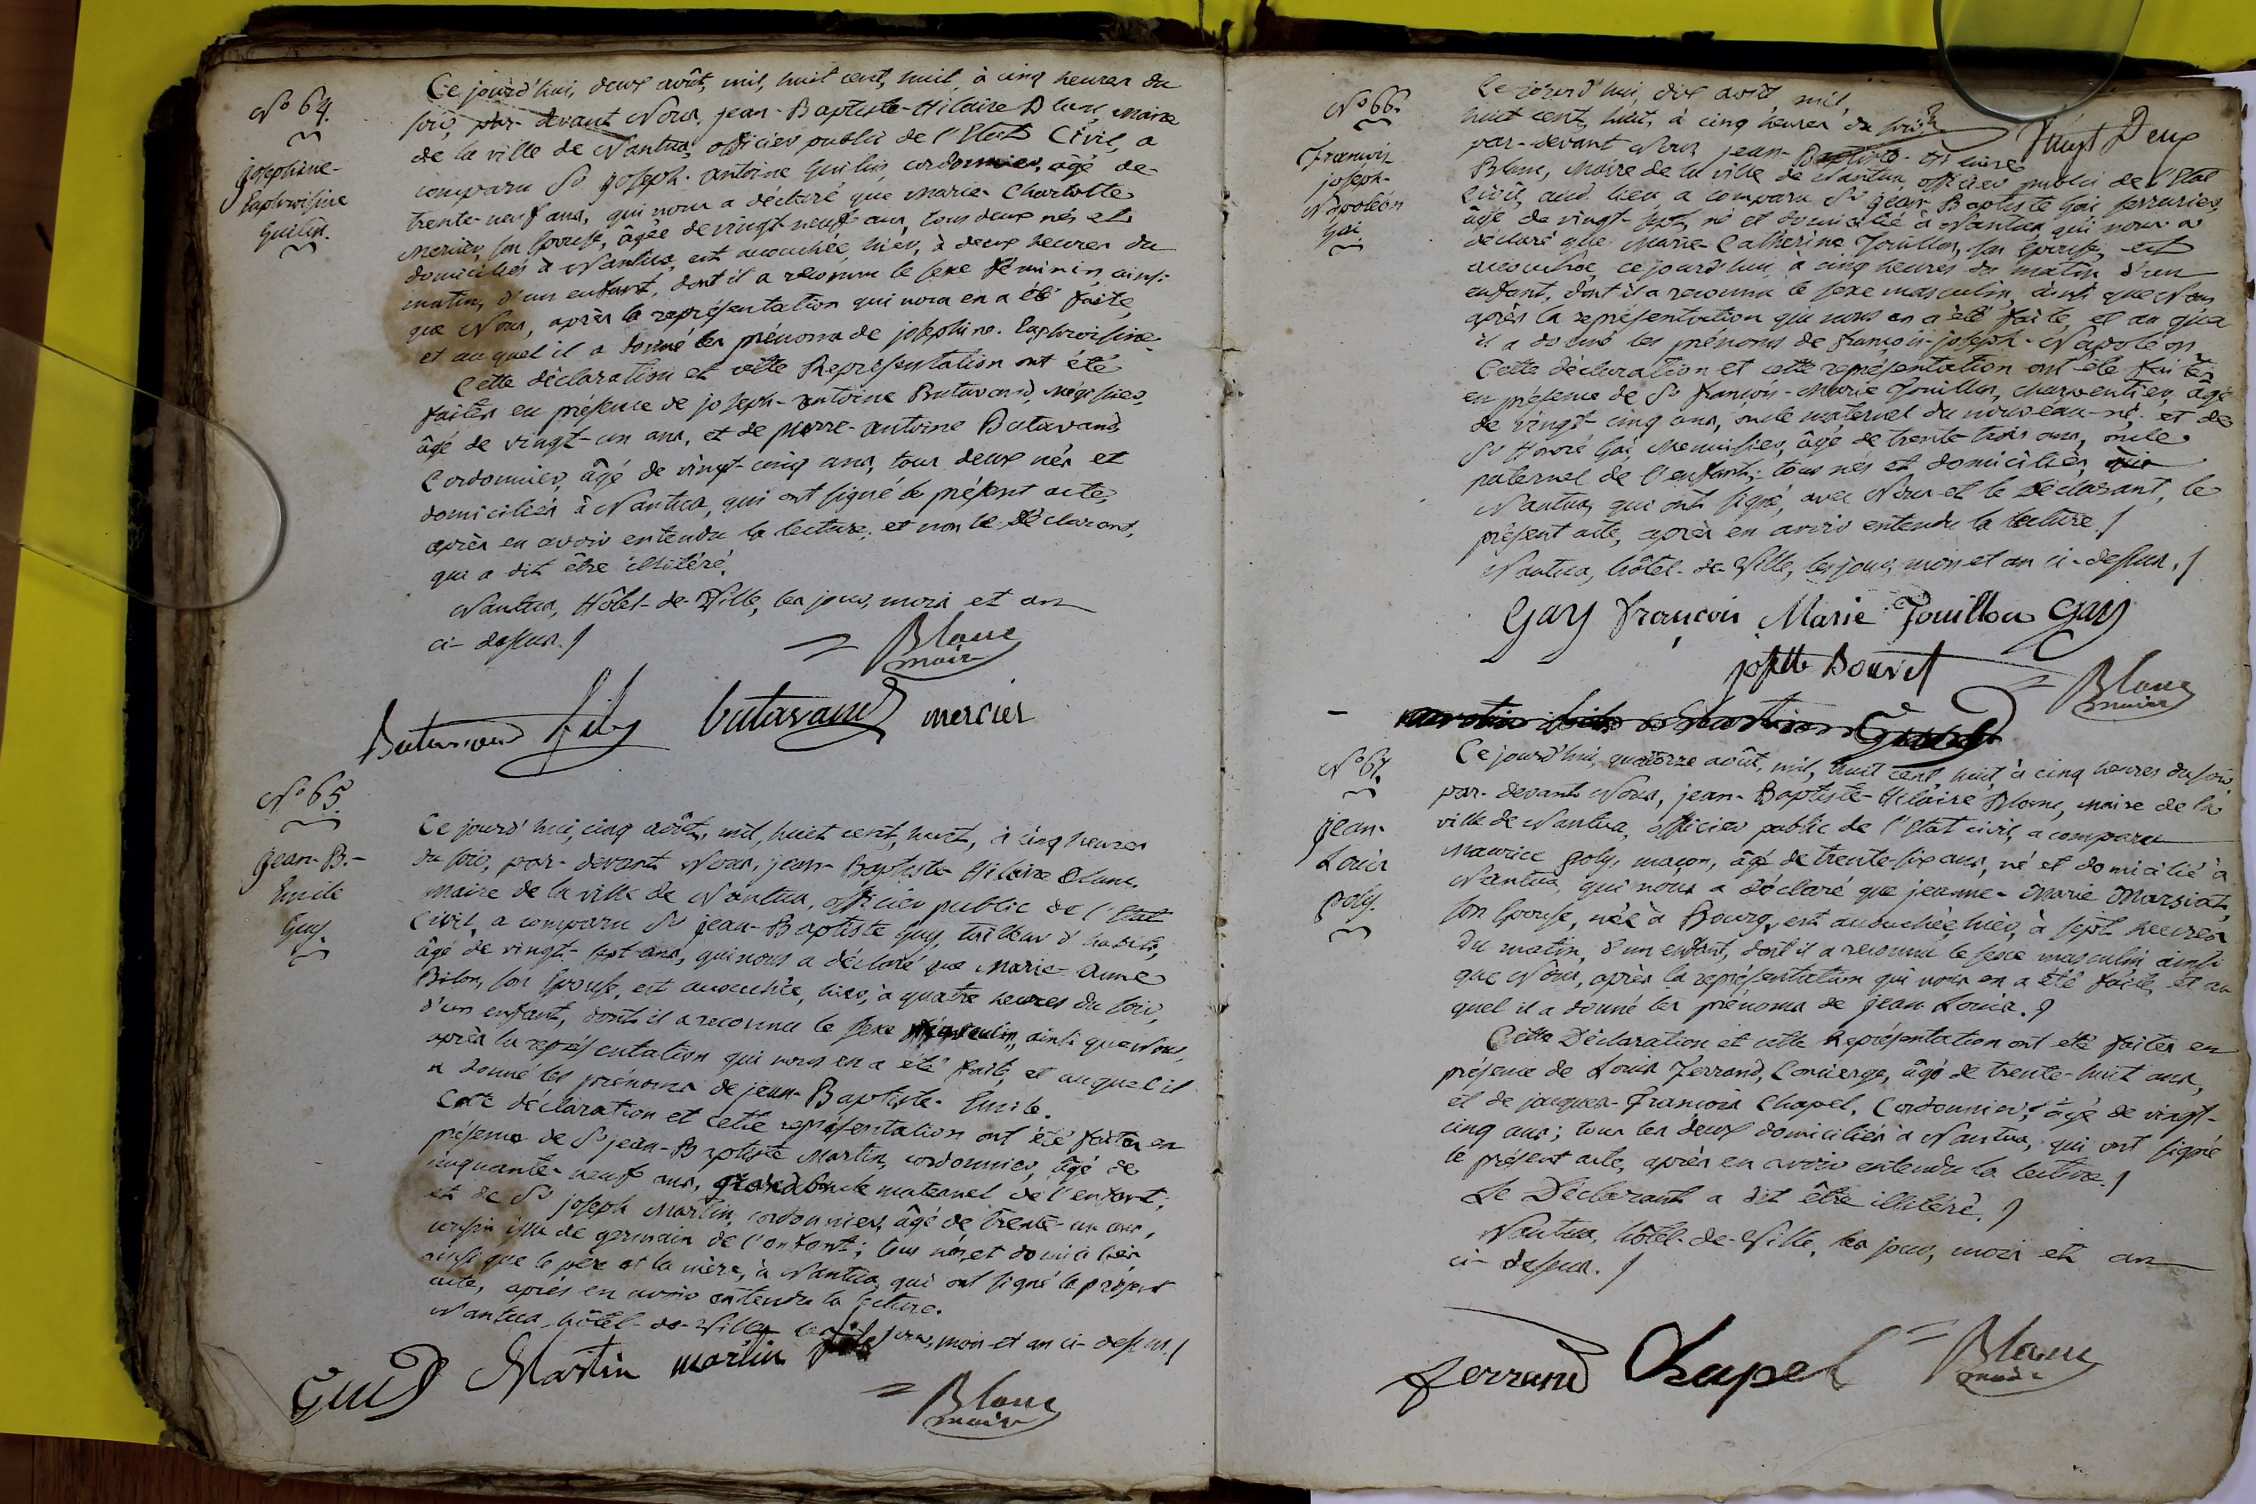 No 64.
josephine-
Euphroisine
Guilin.
Ce jourd'hui, deux août, mil, huit cent, huit, à cinq heures du
soir, par-devant Nous, jean-Baptiste-Hilaire Blanc, Maire
de la ville de Nantua, officier public de l'Etat Civil, a
comparu Sr joseph-antoine Guilin, cordonnier, âgé de-
trente-neuf ans, qui nous a déclaré que Marie-Charlotte
Mercier, son Epouse, âgée de vingt neuf ans, tous deux nés et
domiciliés à Nantua, est accouchée, hier, à deux heures du
matin, d'un enfant, dont il a reconnu le sexe féminin, ainsi
que Nous, après la représentation qui nous en a été faite,
et auquel il a donné les prénoms de josephine-Euphroisine.
Cette déclaration et cette Représentation ont été
faites en présence de joseph-antoine Butavand, Mégissier,
âgé de vingt-un ans, et de pierre-antoine Butavand
Cordonnier, âgé de vingt-cinq ans, tous deux nés et
domiciliés à Nantua, qui ont signé le présent acte,
après en avoir entendu la lecture; et non le Déclarant,
qui a dit être illitéré.
Nantua, Hôtel-de-Ville, les jour, mois et an
ci-dessus./
Blanc
maire
Butavand fils butavand mercier
No 65.
jean-B.-
Emile
Guy.
Ce jourd'hui, cinq août, mil, huit cent, huit, à cinq heures
du soir, par-devant Nous, jean-Baptiste-Hilaire Blanc,
Maire de la ville de Nantua, officier public de l'Etat
Civil, a comparu Sr jean-Baptiste Guy, tailleur d'habits,
âgé de vingt-sept ans, qui nous a déclaré que Marie-Anne
son Epouse, est accouchée, hier, à quatre heures du soir,
d'un enfant, dont il a reconnu le sexe Masculin, ainsi que Nous,
après la représentation qui nous en a été faite, et auquel il
a donné les prénoms de jean-Baptiste-Emile.
Cette déclaration et cette représentation ont été faites en
présence de Sr jean-Baptiste Martin, cordonnier, âgé de
cinquante-neuf ans, grand oncle maternel de l'enfant;
et de Sr joseph Martin, cordonnier, âgé de trente-un ans,
cousin issu de germain de l'enfant; tous nés et domiciliés
ainsi que le père et la mère, à Nantua, qui ont signé le présent
acte, après en avoir entendu la lecture.
Nantua, hôtel-de-Ville, les jour, mois et an ci-dessus./
Guy Martin martin
Blanc
maire
Vingt Deux
No 66.
François
joseph-
Napoléon
Gai
Ce jourd'hui, dix août mil,
huit cent, huit, à cinq heures du soir
par-devant Nous jean-Baptiste-Hilaire
Blanc, Maire de la ville de Nantua, officier public de l'Etat
Civil, aud. lieu, a comparu Sr jean-Baptiste Gai, serrurier,
âgé de vingt-sept, né et domicilié à Nantua, qui nous a
déclaré que Marie Catherine Jouillon, son Epouse, est
accouchée, ce jourd'hui, à cinq heures du matin d'un
enfant, dont il a reconnu le sexe masculin, ainsi que Nous
après la représentation qui nous en a été faite, et au quel
il a donné les prénoms de françois-joseph-Napoléon
Cette déclaration et cette représentation ont été faites
en présence de Sr françois-Marie Jouillon, charpentier, âgé
de vingt-cinq ans, oncle maternel du nouveau-né; et de
Sr Honoré Gai, Menuisier, âgé de trente trois ans, oncle
paternel de l'enfant; tous nés et domiciliés
Nantua, qui ont signé, avec Nous et le Déclarant, le
présent acte, après en avoir entendu la lecture./
Nantua, hôtel-de-Ville, les jour, mois et an ci-dessus./
Gay françois Marie Jouillon Gay
josette Bouvet
Blanc
maire
No 67.
jean-
Louis
poly.
Ce jourd'hui, quatorze août, mil, huit cent, huit, à cinq heures du soir
par-devant Nous, jean-Baptiste-Hilaire Blanc, Maire de la
ville de Nantua, officier public de l'Etat civil, a comparu
Maurice poly, maçon, âgé de trente-six ans, né et domicilié à
Nantua, qui nous a déclaré que jeanne-Marie Marsiat,
son Epouse, née à Bourg, est accouchée, hier, à sept heures
du matin, d'un enfant, dont il a reconnu le sexe masculin ainsi
que Nous, après la représentation qui nous en a été faite, et au
quel il a donné les prénoms de jean Louis./
Cette Déclaration et cette Représentation ont été faites en
présence de Louis Ferrand, Concierge, âgé de trente-huit ans,
et de jacques-François Chapel, Cordonnier, âgé de vingt-
cinq ans; tous les deux domiciliés à Nantua, qui ont signé
le présent acte, après en avoir entendu la lecture./
Le Déclarant a dit être illitéré./
Nantua, hôtel-de-Ville, les jour, mois et an
ci-dessus./
ferrand Chapel
Blanc
maire